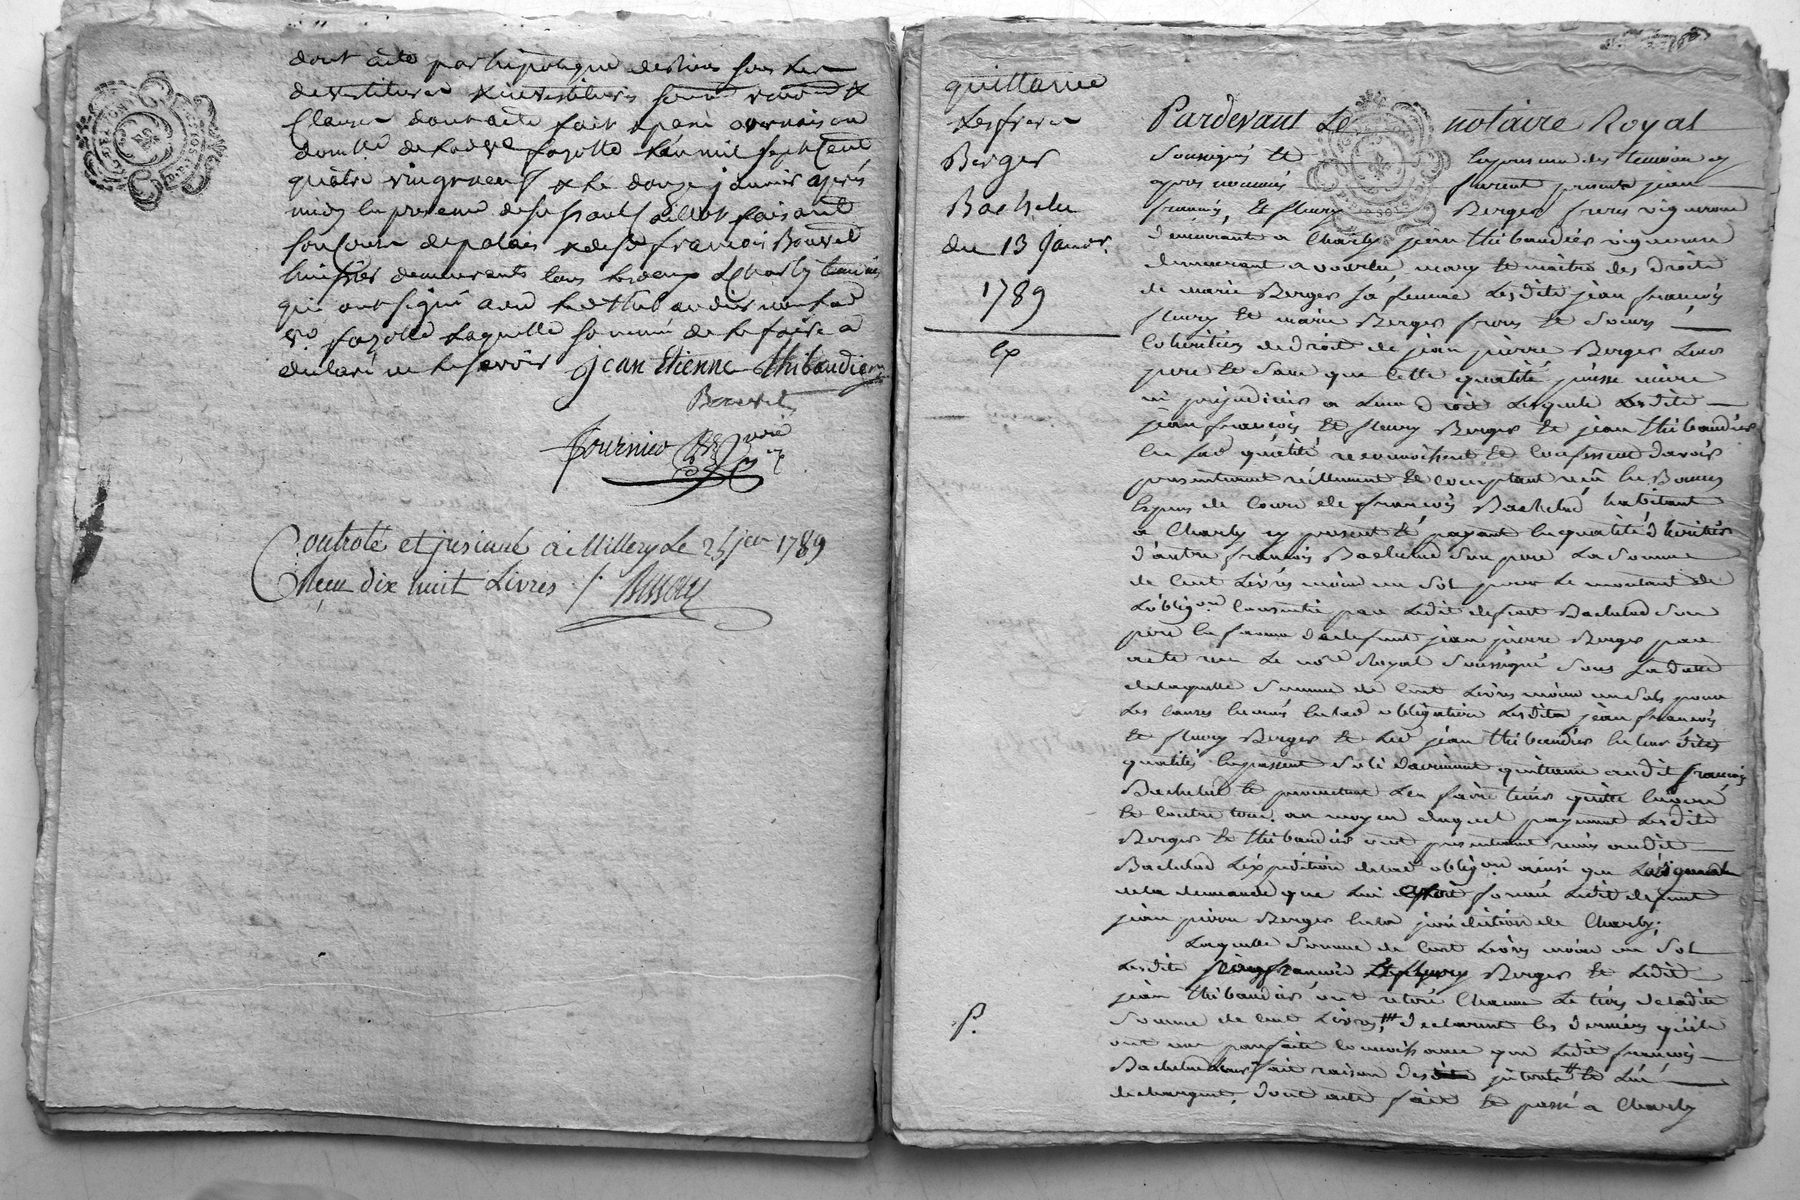 dont acte par hipoteque
devestitures
Clauses dont acte fait & passé
domlle de lad ve fayolle l'an mil sept cent
quatre vingt neuf & le douze janvier après
midi en présence de faisant
son cours de palais & de sr françois Bouvet
huissier demeurants tous les deux à Charly témoins
qui ont signé avec led thibaudier non lad
ve fayolle laquelle sommée de le faire a
declaré ne le savoir Jean Etienne thibaudier
Bouvet
fournier
Controlé et insinué à Millery Le 25 jer 1789
Reçu dix huit Livres
quittance
Les freres
Berger
Bachelu
du 13 Janvr.
1789
Pardevant Le notaire Royal
soussigné et en presence des temoins cy
apres nommés furent presents jean
françois, et fleury Berger freres vignerons
demeurants a Charly jean thibaudier vigneron
demeurant a vourles, mary et maitre des droits
de marie Berger sa femme lesdits jean françois
fleury et marie Berger freres et soeurs
Cohéritiers de droit de jean pierre Berger leur
pere et sans que cette qualité puisse nuire
ni prejudicier a leur droit lesquels lesdits
jean françois et fleury Berger et jean thibaudier
en sad qualité reconnoissent et confessent d'avoir
presentement réellement et comptant reçu en Bonnes
espèces de cours de françois Bachelud habitant
a Charly cy present et payant en qualité d'héritier
d'autre françois Bachelud son pere La somme
de Cent Livres moins un sol pour le montant de
L'oblign. consentie par Ledit défunt Bachelud son
père en faveur dudefunt jean pierre Berger par
acte reçu Le nore Royal soussigné sous sa datte
de laquelle somme de cent Livres moins un sol pour
Les causes enoncés en lad obligation Lesdits jean françois
et fleury Berger et led jean thibaudier en leurs dites
qualités en passent quittance audit françois
Bachelud et promettent l'en faire tenir quitte envers
et contre tous. au moyen duquel payement Lesdits
Berger et thibaudier ont presentement remis audit
Bachelud L'expedition de lad oblign. ainsi que L'original
de la demande que lui avoit formé Ledit defunt
jean pierre Berger en la jurisdiction de Charly;
Laquelle somme de Cent Livres moins un sol
Lesdits jean françois et fleury Berger et Ledit
jean thibaudier ont retiré chacun Le tiers de ladite
somme de cent Livres, declarant les derniers qu'ils
ont une parfaite connoissance que Ledit françois
Bachelud leur fait raison des interets et L'en
P.
dechargent, dont acte fait et passé a Charly